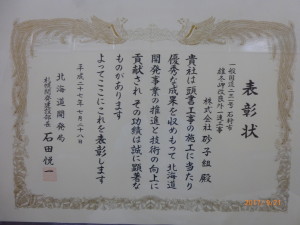 表彰状
一般国道二三一号 石狩市
雄冬岬改良外一連工事
株式会社 砂子組 殿
貴社は頭書工事の施工に当たり
優秀な成果を収めもって北海道
開発事業の推進と技術の向上に
貢献され その功績は誠に顕著な
ものがあります
よってここにこれを表彰します
平成二十七年七月二十八日
北海道開発局
札幌開発建設部長 石田悦一